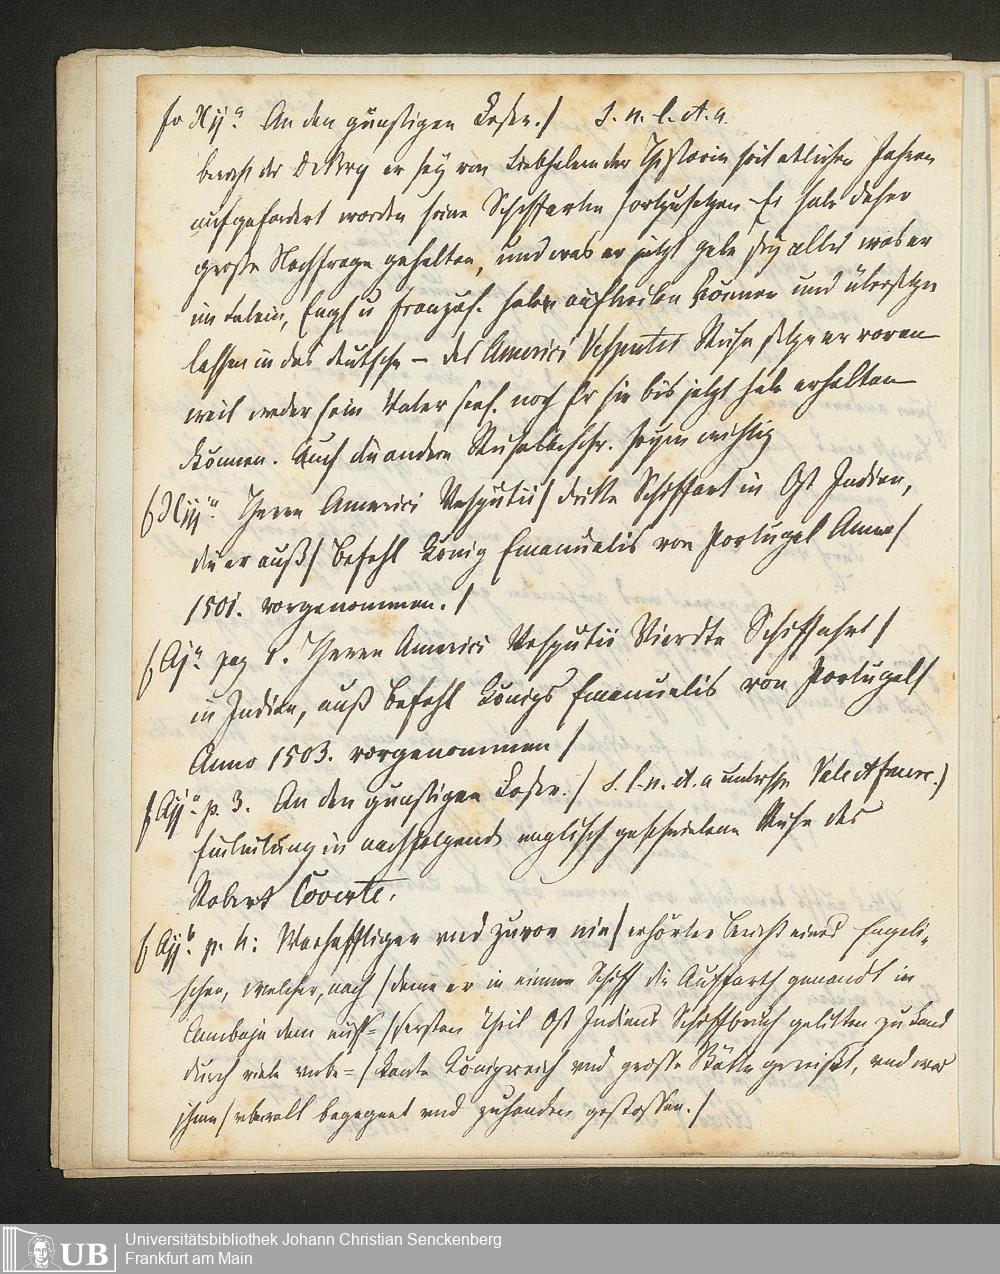 fo )(ijᵃ. An den günstigen Leser./ S. n. l. et. a.
bericht der DeBry er sey von Liebhabern der Historien seit etlichen Jahren
aufgefordert worden seine Schiffarten fortzusetzen – Er habe daher
große Nachfrage gehalten, und was er jetzt gebe sey alles was er
im Latein, Engl u französ. habe auftreiben können und übersetzen
lassen in das deutsche – des Americi Vesputii Reise setze er voran
weil weder sein Vater seel. noch Er sie bis jetzt habe erhalten
können. Auch die andern Reisebeschr. seyen wichtig
f )(iijᵃ. Herrn Americi Vesputii/ dritte Schiffart in Ost Indien,
die er auß/ Befehl König Emanuelis von Portugal Anno/
1501. vorgenommen./
f Ajᵃ. pag 1. Herrn Americi Vesputii Vierdte Schiffahrt/
in Indien, auß Befehl Königs Emanuelis von Portugall/
Anno 1503. vorgenommen/
f Aijᵃ. p. 3. An den günstigen Leser./ s. l. n. et. a
Einleitung in nachfolgende englisch geschriebene Reise des
Robert Coverte.
f Aijᵇ. p. 4: Warhafftiger vnd zuvor nie/ erhörter Bericht eines Engeli-
schen, Welcher, nach/ deme er in einem Schiff die Auffarth genandt in
Cambaja dem euss=/sersten Theil Ost Indiens Schiffbruch gelitten zu Land
durch viele vnbe=/kante Königreich vnd grosse Stätte gereißt, vnd was
jhme/ vberall begegnet vnd zuhanden gestossen./
UB
Universitätsbibliothek Johann Christian Senckenberg
Frankfurt am Main